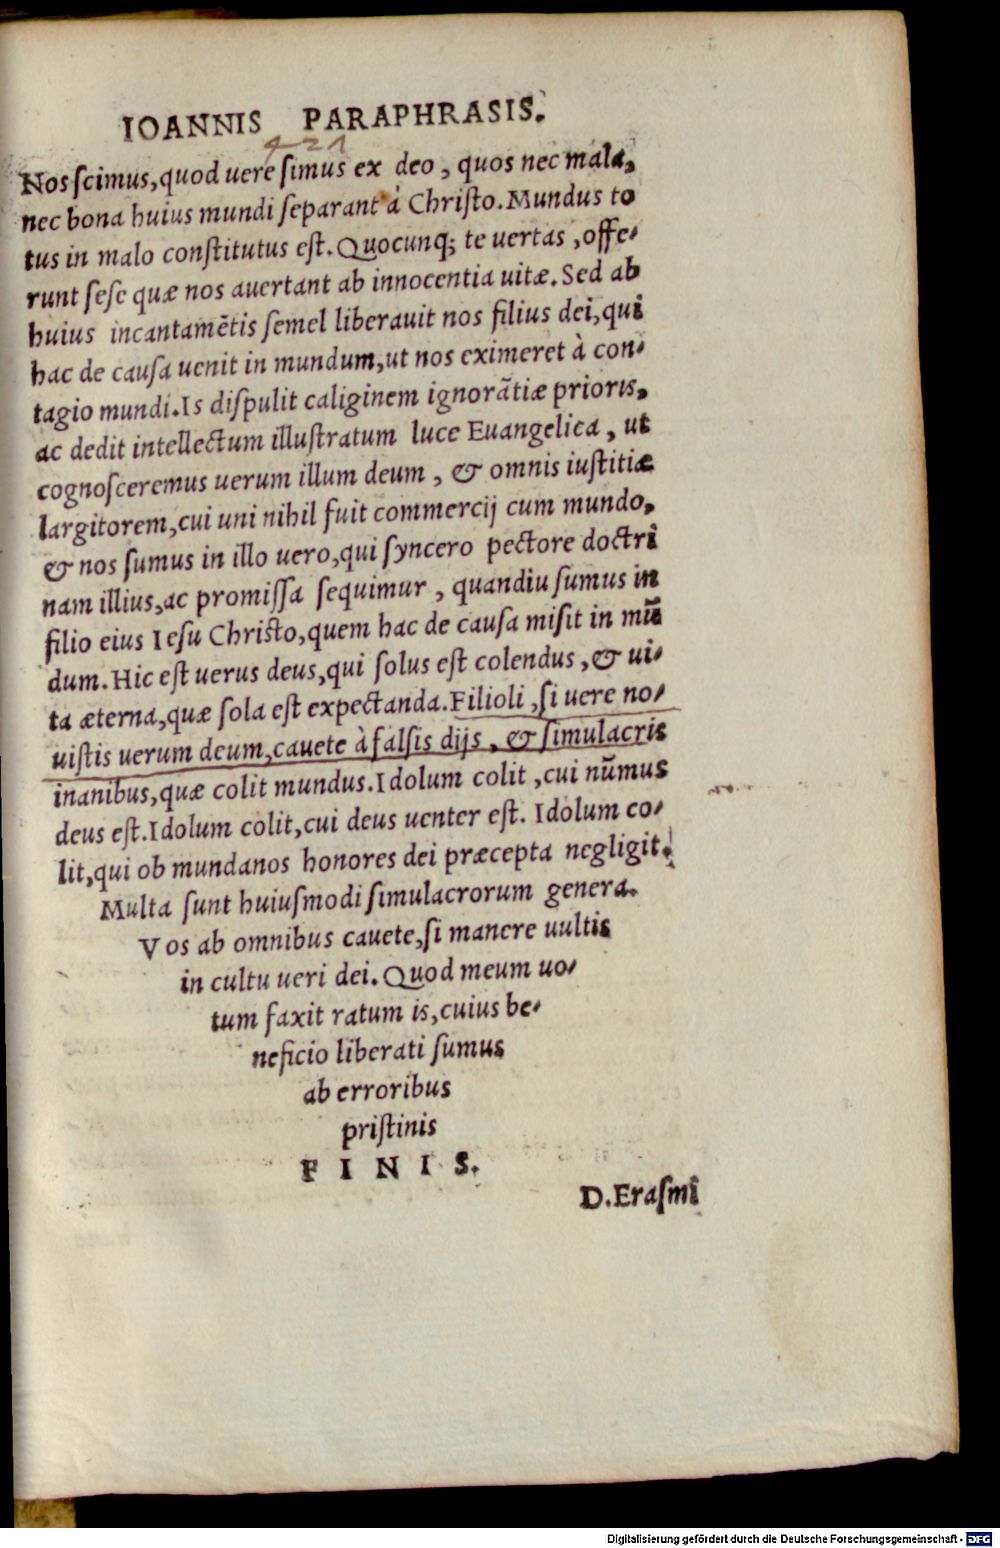 IOANNIS PARAPHRASIS.
421
Nos ſcimus, quod uere ſimus ex deo, quos nec mala,
nec bona huius mundi ſeparant à Chriſto. Mundus to
tus in malo conſtitutus eſt. Quocunq; te uertas, offe-
runt ſeſe quæ nos auertant ab innocentia uitæ. Sed ab
huius incantamẽtis ſemel liberauit nos filius dei, qui
hac de cauſa uenit in mundum, ut nos eximeret à con-
tagio mundi. Is diſpulit caliginem ignorãtiæ prioris,
ac dedit intellectum illuſtratum luce Euangelica, ut
cognoſceremus uerum illum deum, & omnis iuſtitiæ
largitorem, cui uni nihil fuit commercij cum mundo,
& nos ſumus in illo uero, qui ſyncero pectore doctri
nam illius, ac promiſſa ſequimur, quandiu ſumus in
filio eius Ieſu Chriſto, quem hac de cauſa miſit in mũ
dum. Hic eſt uerus deus, qui ſolus eſt colendus, & ui-
ta æterna, quæ ſola eſt expectanda. Filioli, ſi uere no-
uiſtis uerum deum, cauete à falſis dijs, & ſimulacris
inanibus, quæ colit mundus. Idolum colit, cui nũmus
deus eſt. Idolum colit, cui deus uenter eſt. Idolum co-
lit, qui ob mundanos honores dei præcepta negligit.
Multa ſunt huiuſmodi ſimulacrorum genera.
Vos ab omnibus cauete, ſi manere uultis
in cultu ueri dei. Quod meum uo-
tum faxit ratum is, cuius be-
neficio liberati ſumus
ab erroribus
priſtinis
FINIS.
D. Eraſmi
Digitalisierung gefördert durch die Deutsche Forschungsgemeinschaft - DFG